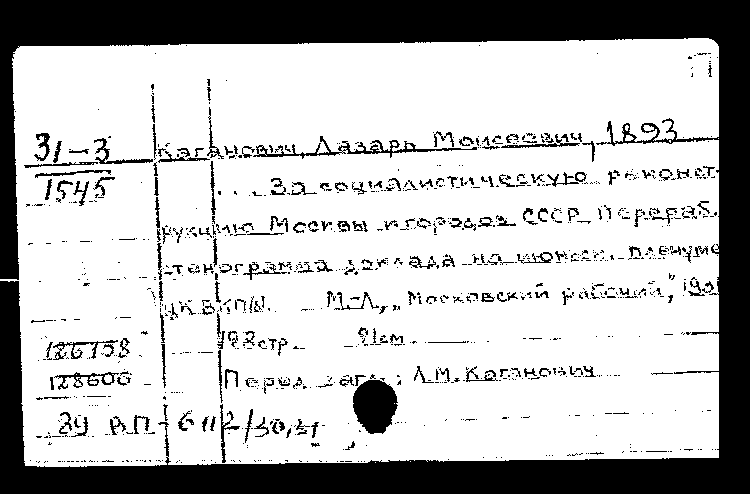 П
31-3 Каганович, Лазарь Моисеевич, 1893
1545 ... За социалистическую реконст-
рукцию Москвы и городов СССР Перераб.
стенограмма доклада на июньск. пленуме
ЦК ВКП/б/. М.-Л., „Московский рабочий",
128стр. 21см.
126158
128606 Перед загл.: Л.М.Каганович
39 ВП-6112/30,31